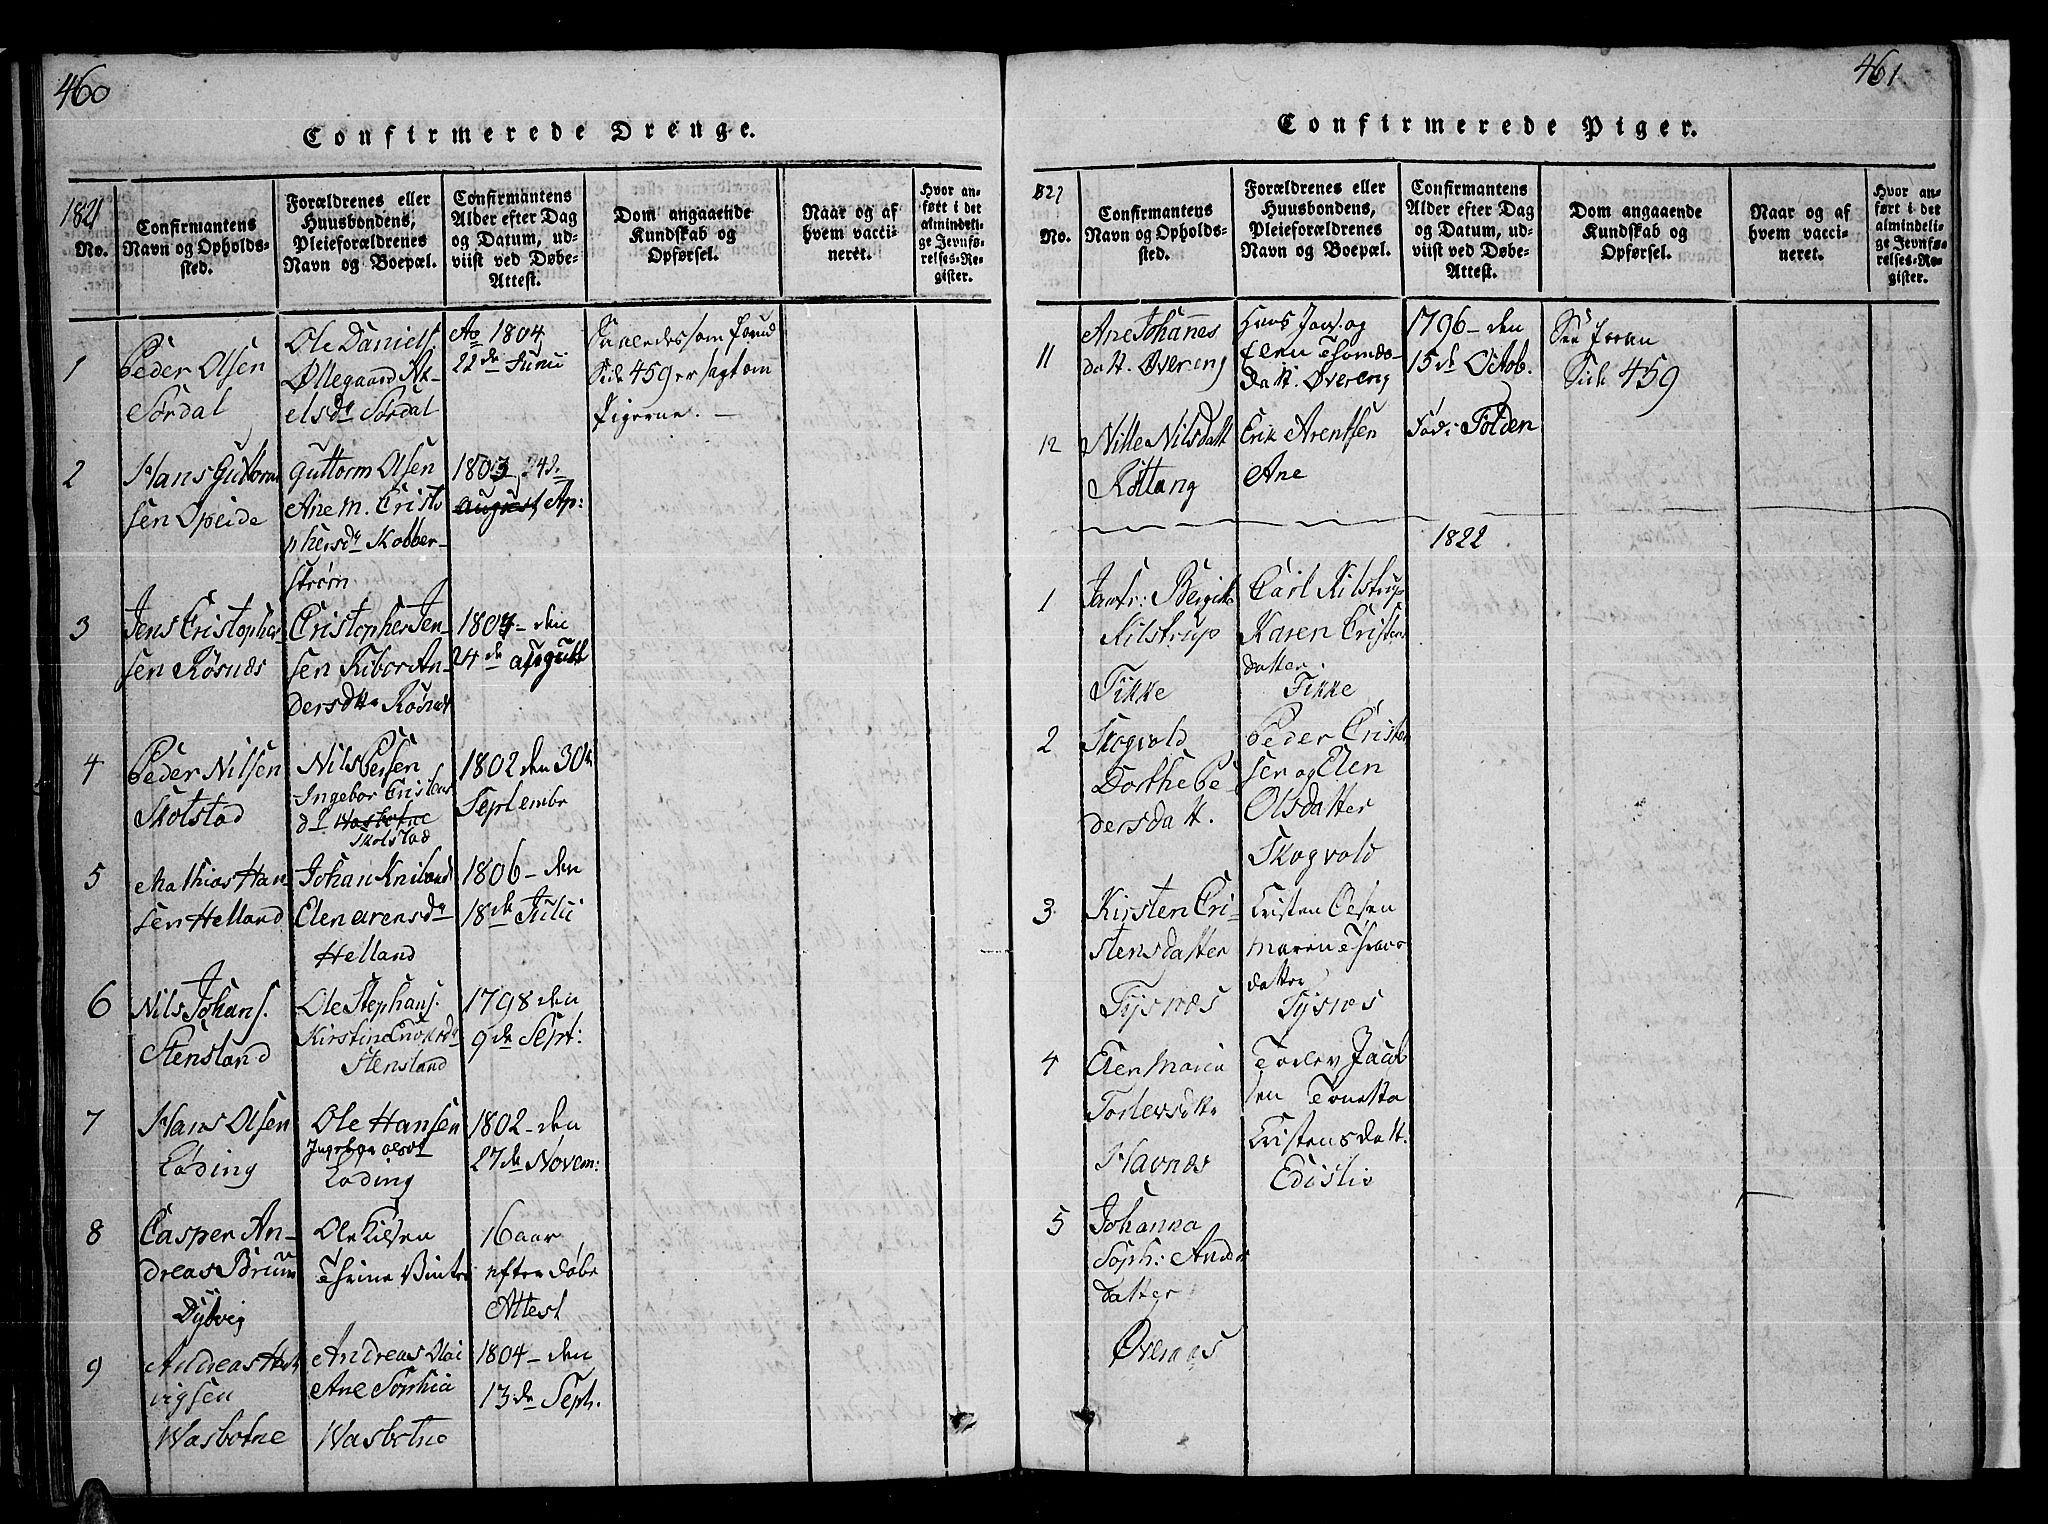 460
Confirmerede Drenge.
1821
No.
Confirmantens
Navn og Opholds-
sted.
Forældrenes eller
Huusbondens,
Pleieforældrenes
Navn og Boepæl.
Confirmantens
Alder efter Dag
og Datum, ud-
viist ved Døbe-
Attest.
Dom angaaende
Kundskab og
Opførsel.
Naar og af
hvem vacci-
neret.
Hvor an-
ført i det
almindeli-
ge Jevnfø-
relses-Re-
gister.
1
Peder Olsen
Sørdal
Ole Daniels.
Øllegaard Ak-
elsdr Sørdal
Ao 1804
22de Junii
som
Side 459 er sagt om
Pigerne. -
2
Hans Guttorm
sen Opeide
Guttorm Olsen
Ane M. Cristo
phersdr Kobber-
strøm
1803, 24de
August Ap:
3
Jens Cristopher
sen Røsnæs
Cristopher Jen-
sen An-
dersdtr Røsnæs
1804 - den
24de August
4
Peder Nilsen
Skotstad
Nils Persen
Ingebor Cristens
dr Wasbotne
Skotstad
1802 den 30te
Septembr
5
Mathias Han
sen Helland
Johan
Elen Arensdr
Helland
1806 - den
18de Julii
6
Nils Johans.
Stensland
Ole Stephans.
Kirstina
Stensland
1798 den
9de Sept:
7
Hans Olsen
Løding
Ole Hansen
Ingebor Olsdr
Løding
1802 - den
27de Novem:
8
Casper An-
dreas Bruun
Dybvig
Ole Nilsen
Thrine
16 aar
efter Døbe
Attest
9
Andreas
Wasbotne
Andreas Olai
Ane Sophia
Wasbotne
1804 - den
13de Sept.
461
Confirmerede Piger.
821
No.
Confirmantens
Navn og Opholds-
sted.
Forældrenes eller
Huusbondens,
Pleieforældrenes
Navn og Boepæl.
Confirmantens
Alder efter Dag
og Datum, ud-
viist ved Døbe-
Attest.
Dom angaaende
Kundskab og
Opførsel.
Naar og af
hvem vacci-
neret.
Hvor an-
ført i det
almindeli-
ge Jevnfø-
relses-Re-
gister.
11
Ane Johannes
datt. Øvereng
Hans Jons. og
Elen Thomæs-
datt. Øvereng
1796 - den
15de Octob.
See foran
Side 459
12
Nille Nilsdatt
Røttang
Erik Arentsen
Ane
Fød i Folden
1822
1
Jomfr: Bergitte
Kilstrup
Fikke
Carl Kilstrup
Karen Cristens
datter
Fikke
2
Skogvold
Dorthe Pe-
dersdatt.
Peder Cristen
sen og Elen
Olsdatter
Skogvold
3
Kirsten Cri-
stensdatter
Tysnæs
Cristen Olsen
Maren
datter
Tysnæs
4
Elen Maria
Torlevsdtr
Havnæs
Torlev Jacob
sen Tonetta
Cristensdatt.
5
Johanna
Soph: Anders
datter